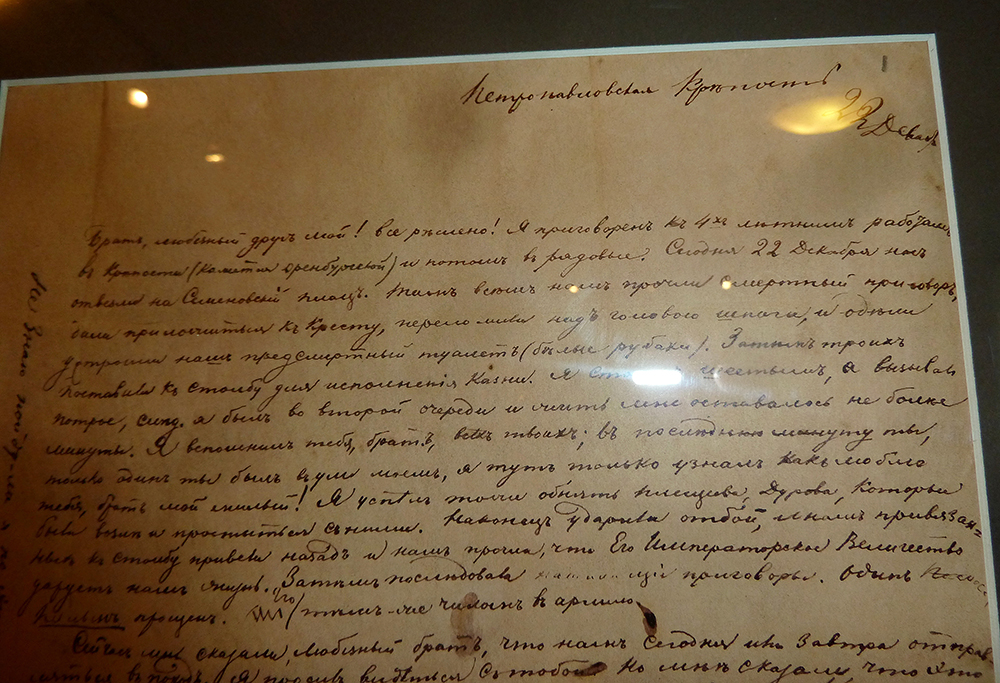 Петропавловская Крѣпость
22 Декабр
Братъ, любезный другъ мой! все рѣшено! Я приговоренъ къ 4хъ лѣтнимъ работамъ
въ Крѣпости (кажется Оренбургской) и потомъ въ рядовые. Сегодня 22 Декабря насъ
отвезли на Семеновскій плацъ. Тамъ всѣмъ намъ прочли смертный приговоръ,
дали приложиться къ Кресту, переломили надъ головою шпаги, и
устроили нашъ предсмертный туалетъ (бѣлые рубахи). Затѣмъ троихъ
поставили къ столбу для исполненія Казни. Я шестымъ, а вызывали
по трое, слѣд. я былъ во второй очереди и жить мнѣ оставалось не болѣе
минуты. Я вспомнилъ тебя, братъ, всѣхъ твоихъ; въ послѣднюю минуту ты,
только одинъ ты былъ въ умѣ моемъ, я тутъ только узналъ какъ люблю
тебя, братъ мой милый! Я успѣлъ тоже обнять Плещеева, Дурова, которые
были возлѣ и проститься съ ними. Наконецъ ударили отбой, привязан-
ныхъ къ столбу привели назадъ и намъ прочли, что Его Императорское Величество
даруетъ намъ жизнь. Затѣмъ послѣдовали приговоры. Одинъ
Пальмъ прощенъ. Его тѣмъ же чиномъ въ армію
Сейчасъ мнѣ сказали, любезный братъ, что намъ сегодня или завтра отправ
ляться въ походъ. Я просилъ видѣться съ тобой. Но мнѣ сказали, что это